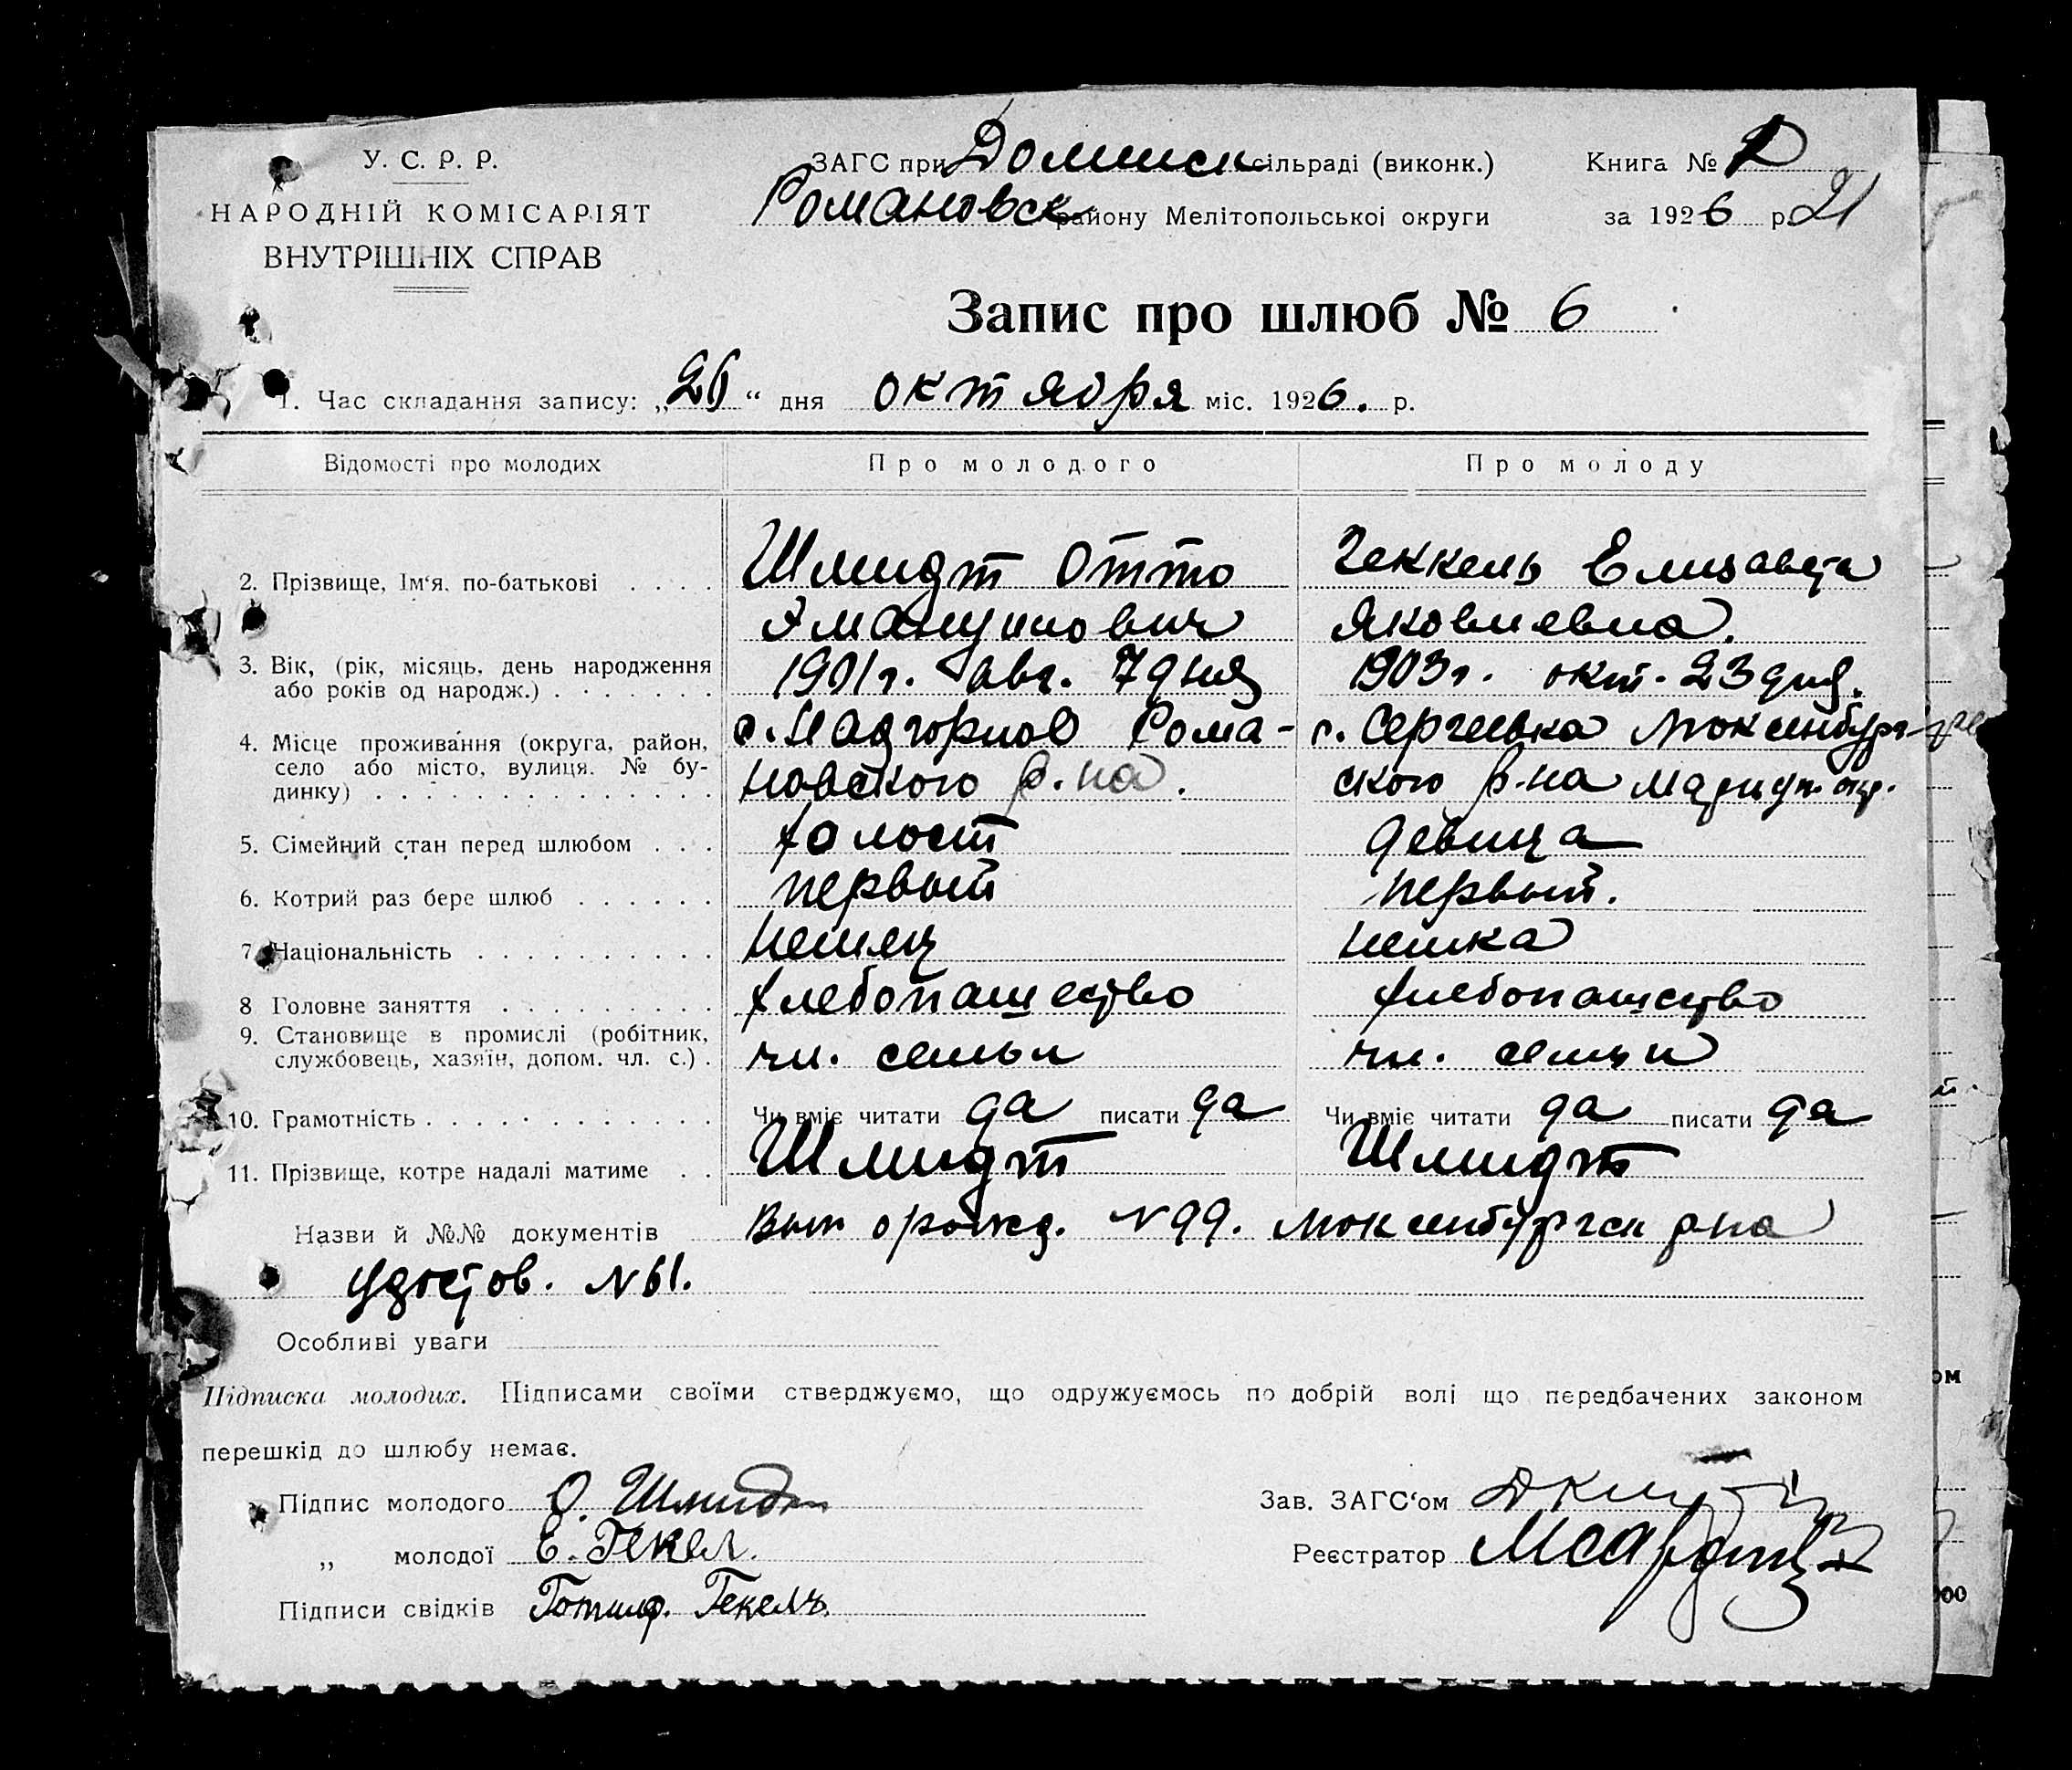 У. С. Р. Р.
НАРОДНІЙ КОМІСАРІЯТ
ВНУТРІШНІХ СПРАВ
ЗАГС при сільраді (виконк.)
Романовск району Мелітопольської округи
Книга №
за 1926 р. 21
Запис про шлюб № 6
1. Час складання запису: „26“ дня октября міс. 1926. р.
Відомості про молодих Про молодого Про молоду
2. Прізвище, Ім‘я, по-батькові Шмидт Отто Геккель Елизавета
Яковлевна.
3. Вік, (рік, місяць, день народження 1901 г. авг. 7 дня 1903 г. окт. 23 дня.
або років од народж.)
4. Місце проживання (округа, район, с. Надгорное Рома- с. Сергеевка Люксенбург-
село або місто, вулиця. № бу- новского р.на. ского р-на Мариуп. окр.
динку)
5. Сімейний стан перед шлюбом холост девица
6. Котрий раз бере шлюб первый первый.
7. Національність немец немка
8 Головне заняття хлебопашество хлебопашество
9. Становище в промислі (робітник, чл. семьи чл. семьи
службовець, хазяїн, допом. чл. с.)
10. Грамотність Чи вміє читати да писати да Чи вміє читати да писати да
11. Прізвище, котре надалі матиме Шмидт Шмидт
Назви й №№ документів Вып о рожд. N 99. Люксенбургск рна
удостов. N 61.
Особливі уваги
Підписка молодих. Підписами своїми стверджуємо, що одружуємось по добрій волі що передбачених законом
перешкід до шлюбу немає.
Підпис молодого О. Шмидт
„ молодої Е. Гекел.
Підписи свідків Готлиф. Гекель.
Зав. ЗАГС‘ом
Реєстратор